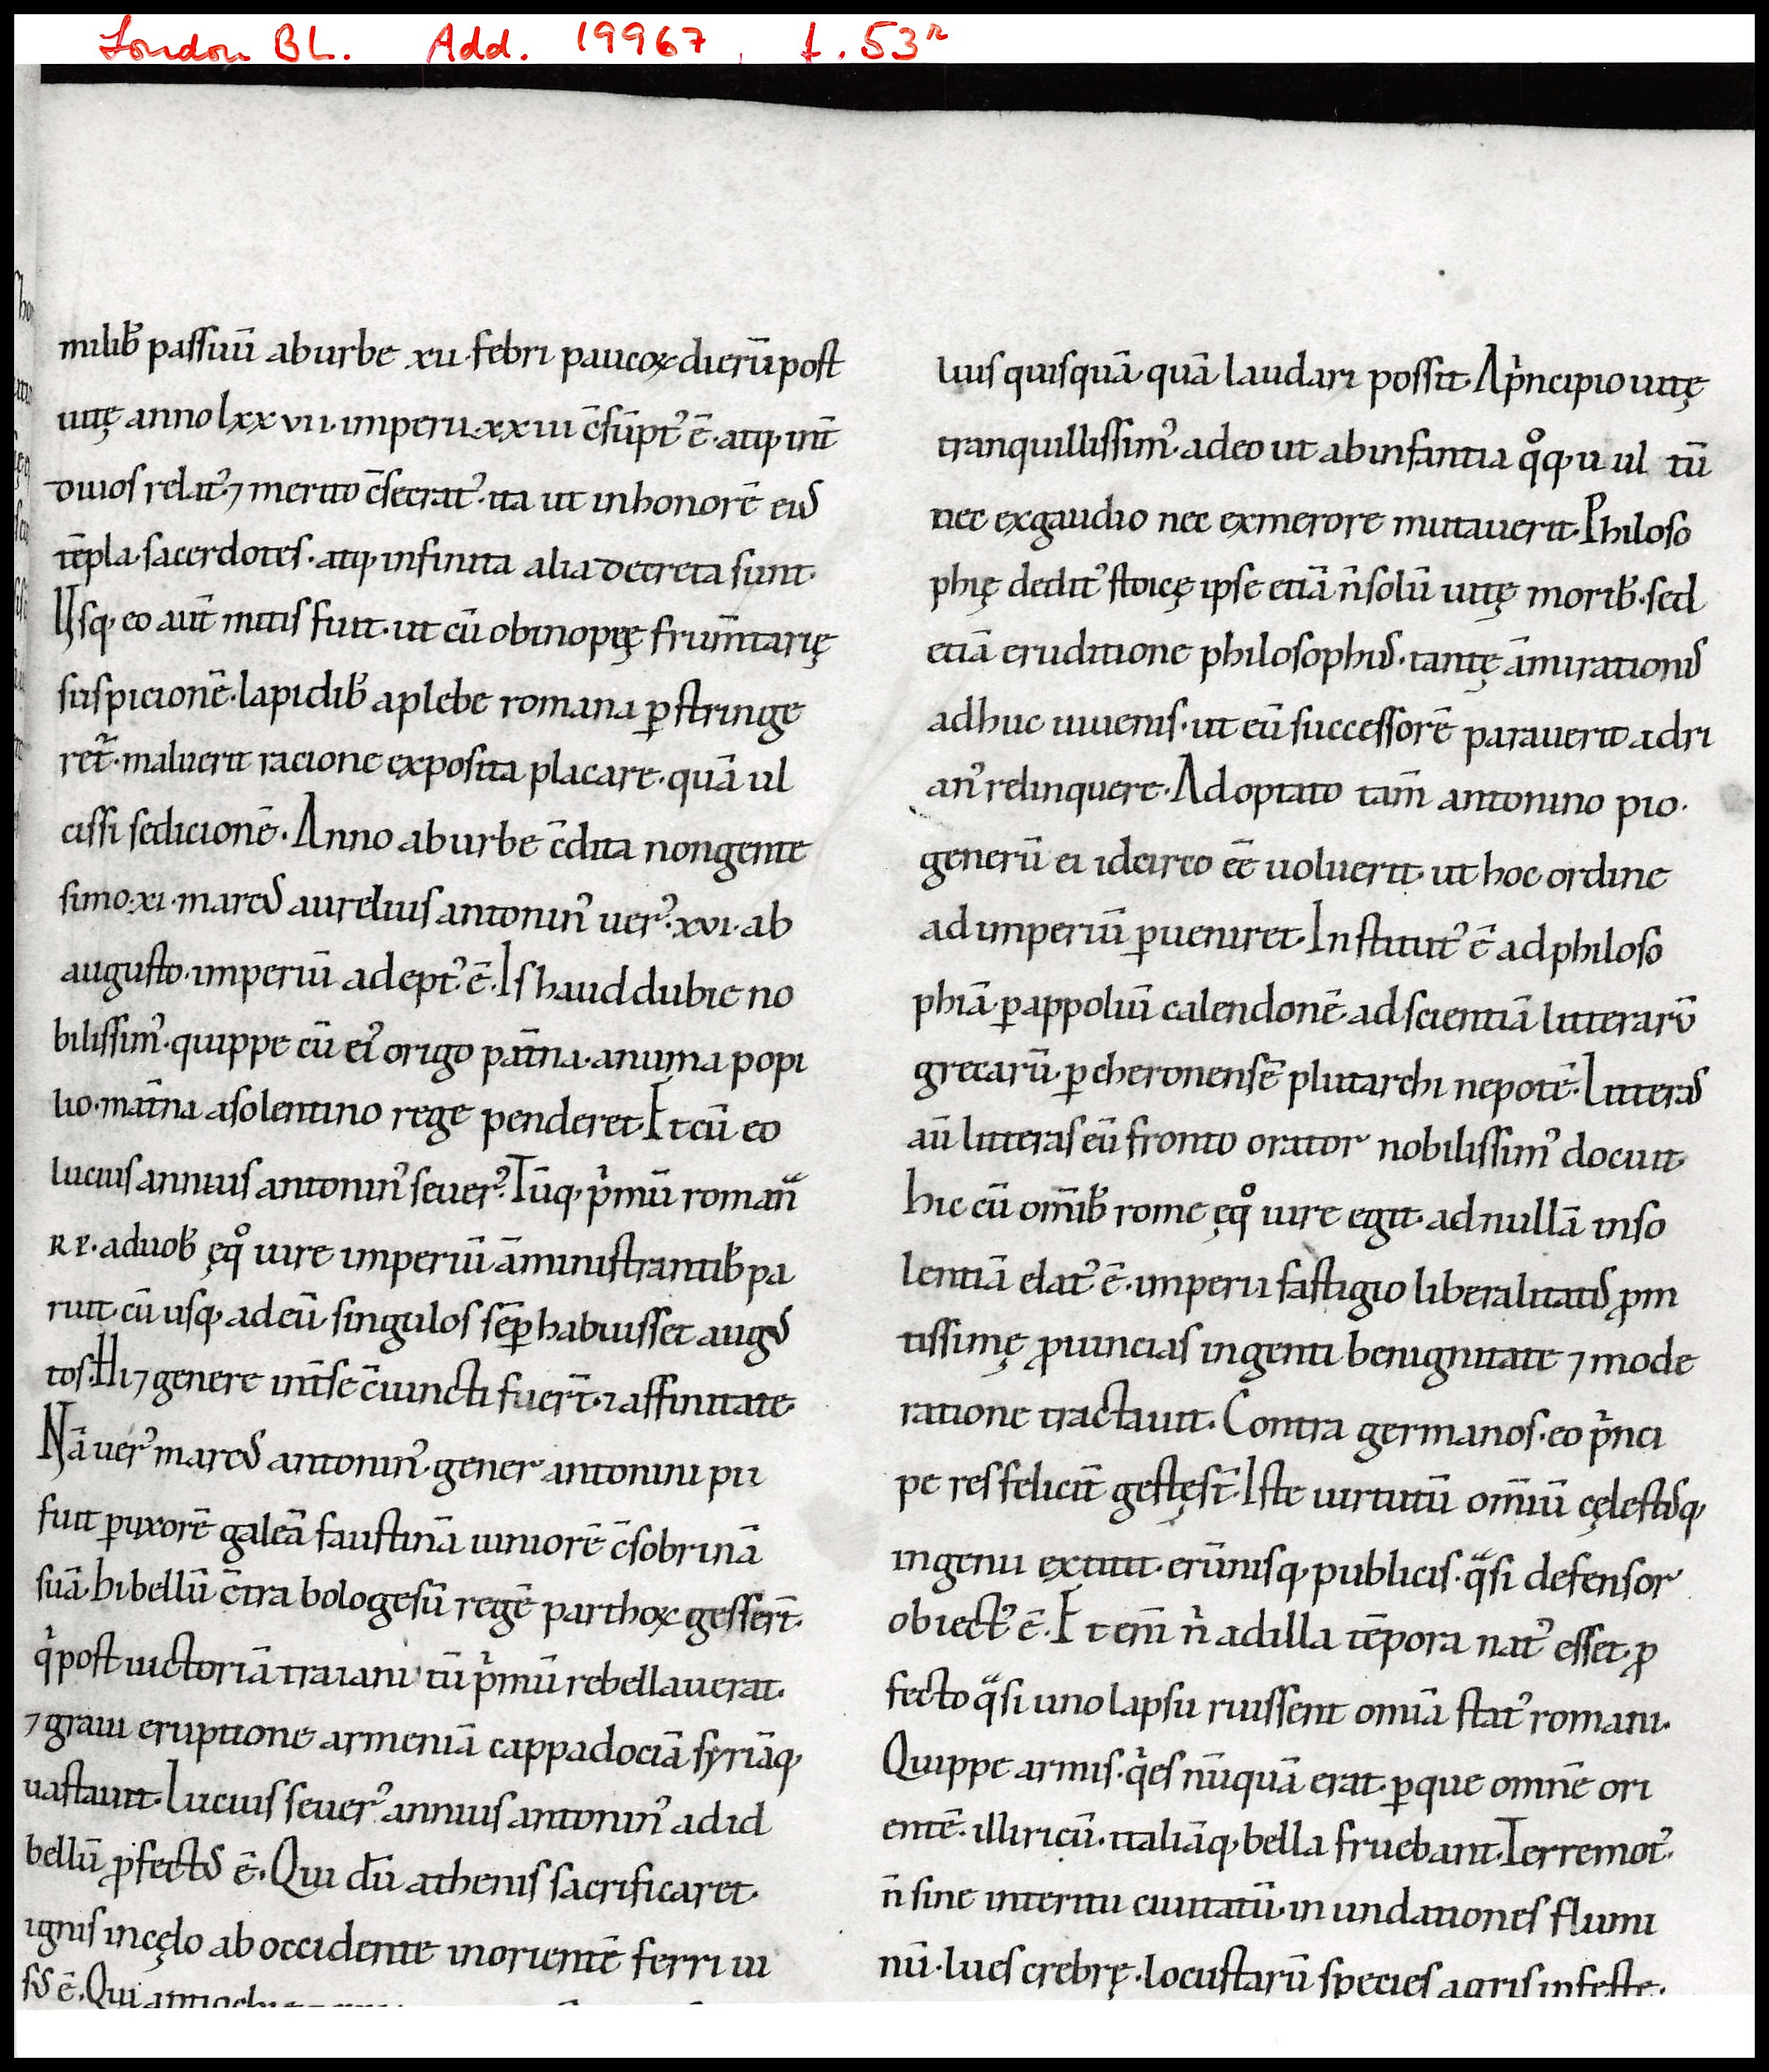 London BL. Add. 19967, f. 53r
milib̄ passuū ab urbe xii · febri paucoꝝ dierū post
uitę anno lxxvii · imperii · xxiii c̄sūpt᾽ ē · atq; int̄
diuos relat᾽ · ⁊ merito c̄secrat᾽ · ita ut in honorē eiꝰ
tēpla · sacerdotes · atq; infinita alia decreta sunt ·
Usq; eo aut̄ mitis fuit · ut cū ob inopię frum̄tarię
suspicionē · lapidib̄ a plebe romana ꝑstringe
ret᷑ · maluerit racione exposita placare · quā ul
cissi sedicionē · Anno ab urbe c̄dita nongente
simo · xi · marcꝰ aurelius antonin᾽ uer᾽ · xvi · ab
augusto · imperiū adept᾽ ē · Is haud dubie no
bilissim᾽ · quippe cū ei᾽ origo pat̄na · a numa popi
lio · mat̄na a solentino rege penderet · Et cū eo
lucius annius antonin᾽ seuer᾽ · Tūq; pͥmū romanͣ
R P · a duob̄ ęqͦ iure imperiū āministrantib̄ pa
ruit · cū usq; ad eū · singulos sēꝑ habuisset augꝰ
tos · Hi ⁊ genere int̄ se c̄iuncti fuer̄t · ⁊ affinitate ·
Nā uer᾽ marcꝰ antonin᾽ · gener antonini pii
fuit ꝑ uxorē galeā faustinā iuniorē c̄sobrinā
suā · hi bellū c̄tra bologesū regē parthoꝝ gesser̄t ·
qͥ post uictoriā traiani tū pͥmū rebellauerat ·
⁊ graui eruptione armeniā cappadociā syriāq;
uastauit · Lucius seuer᾽ annius antonin᾽ ad id
bellū ꝓfectꝰ ē · Qui dū athenis sacrificaret ·
ignis in cęlo ab occidente in orientē ferri ui
sꝰ ē · Qui
lius quisquā · quā laudari possit · A pͥncipio uitę
tranquillissim᾽ · adeo ut ab infantia qͦq; u ul tū
nec ex gaudio nec ex merore mutauerit · Philoso
phię dedit᾽ stoicę ipse etiā n̄ solū uitę morib̄ · sed
etiā eruditione philosophiꝰ · tantę āmirationiꝰ
adhuc iuuenis · ut eū successorē parauerit adri
an᾽ relinquere · Adoptato tam̄ antonino pio ·
generū ei idcirco eē uoluerit · ut hoc ordine
ad imperiū ꝑueniret · Institut᾽ ē ad philoso
phiā · ꝑ appoliū calendonē · ad scientiā litterarū
grecarū · ꝑ cheronensē plutarchi nepotē · Litteraꝰ
aū litteras eū fronto orator nobilissim᾽ docuit ·
hic cū om̄ib̄ rome ęqͦ iure egit · ad nullā inso
lentiā elat᾽ ē · imperii fastigio liberalitatiꝰ ꝓm
tissimę ꝓuincias ingenti benignitate ⁊ mode
ratione tractauit · Contra germanos · eo pͥnci
pe res felicit̄ gestę st̄ · Iste uirtutū omīū cęlestiꝰq;
ingenii extitit · erūnisq; publicis · qͣsi defensor
obiect᾽ ē · Et enī nͥ ad illa tēpora nat᾽ esset · ꝓ
fecto qͣsi uno lapsu ruissent omīa stat᾽ romani ·
Quippe armis · qͥes nūquā erat · ꝑque omnē ori
entē · illiricū · italiāq; bella fruebant · Terremot᾽ ·
n̄ sine interitu ciuitatū · inundationes flumi
nū · lues crebrę · locustarū species agris infeste ·